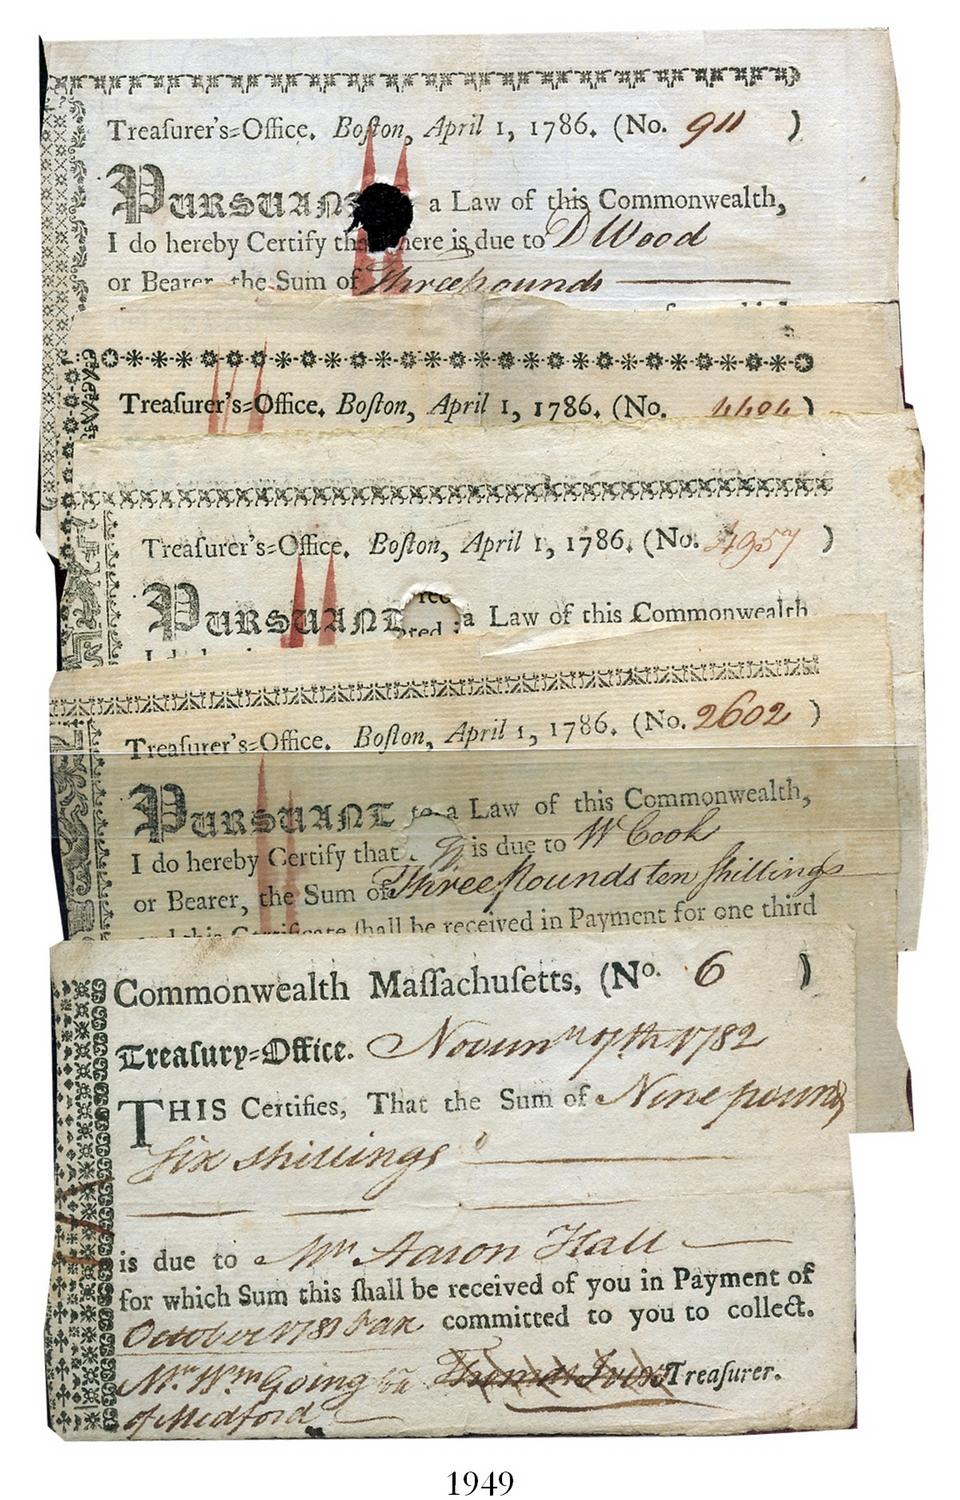 Treaſurer's=Office. Boſton, April 1, 1786. (No. 911 )
PURSUANT a Law of this Commonwealth,
I do hereby Certify that there is due to D Wood
or Bearer the Sum of Three pounds
Treaſurer's=Office. Boſton, April 1, 1786. (No. )
Treaſurer's=Office. Boſton, April 1, 1786. (No. 4957 )
PURSUANT a Law of this Commonwealth
Treaſurer's=Office. Boſton, April 1, 1786. (No. 2602 )
PURSUANT to a Law of this Commonwealth,
I do hereby Certify that is due to W Cook
or Bearer, the Sum of Three Pounds ten ſhillings
and this Certificate ſhall be received in Payment for one third
Commonwealth Maſſachuſetts, (No. 6 )
Treaſury=Office. 7th 1782
THIS Certifies, That the Sum of Nine pounds
ſix shillings
is due to Mr Aaron Hall
for which Sum this ſhall be received of you in Payment of
October 1781 Tax committed to you to collect.
Mr. Wm Going Treaſurer.
of Medford
1949